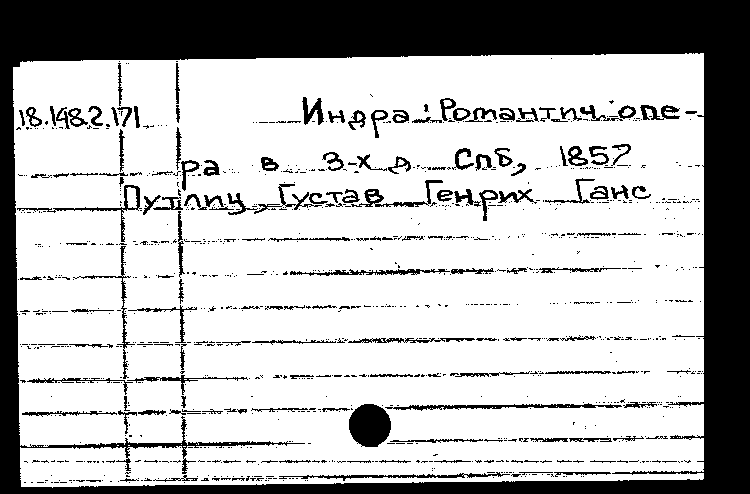 18.148.2.171 Индра: Романтич. опе-
ра в 3-х д. Спб, 1857
Путлиц, Густав Генрих Ганс